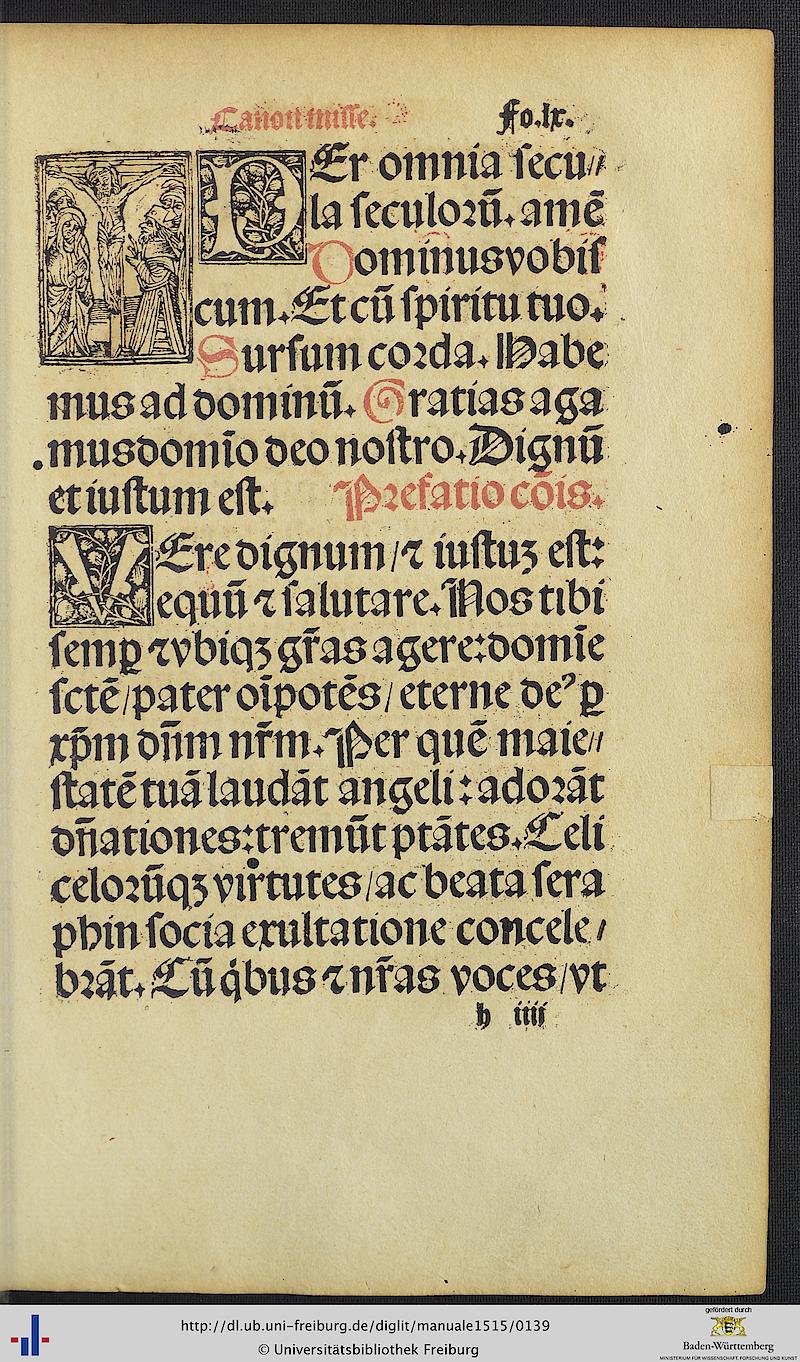 Canon misse.
Fo.lx.
PEr omnia secu//
la seculorū. amē
Dominus vobis
cum. Et cū spiritu tuo.
Sursum corda. Habe
mus ad dominū. Gratias aga
mus domīo deo nostro. Dignū
et iustum est. Prefatio cōis.
VEre dignum/⁊ iustuꝫ est:
equū ⁊ salutare. Nos tibi
semꝑ ⁊ vbiqꝫ gr̄as agere: domīe
sctē/pater oīpotēs/eterne deꝰ ꝑ
xp̄m dn̄m nr̄m. Per quē maie//
statē tuā laudāt angeli: adorāt
dn̄ationes: tremūt ptātes. Celi
celorūqꝫ vir̄tutes/ac beata sera
phin socia exultatione concele/
brāt. Cū q̇bus ⁊ nr̄as voces/vt
h iiij
http://dl.ub.uni-freiburg.de/diglit/manuale1515/0139
© Universitätsbibliothek Freiburg
gefördert durch
Baden-Württemberg
MINISTERIUM FÜR WISSENSCHAFT, FORSCHUNG UND KUNST